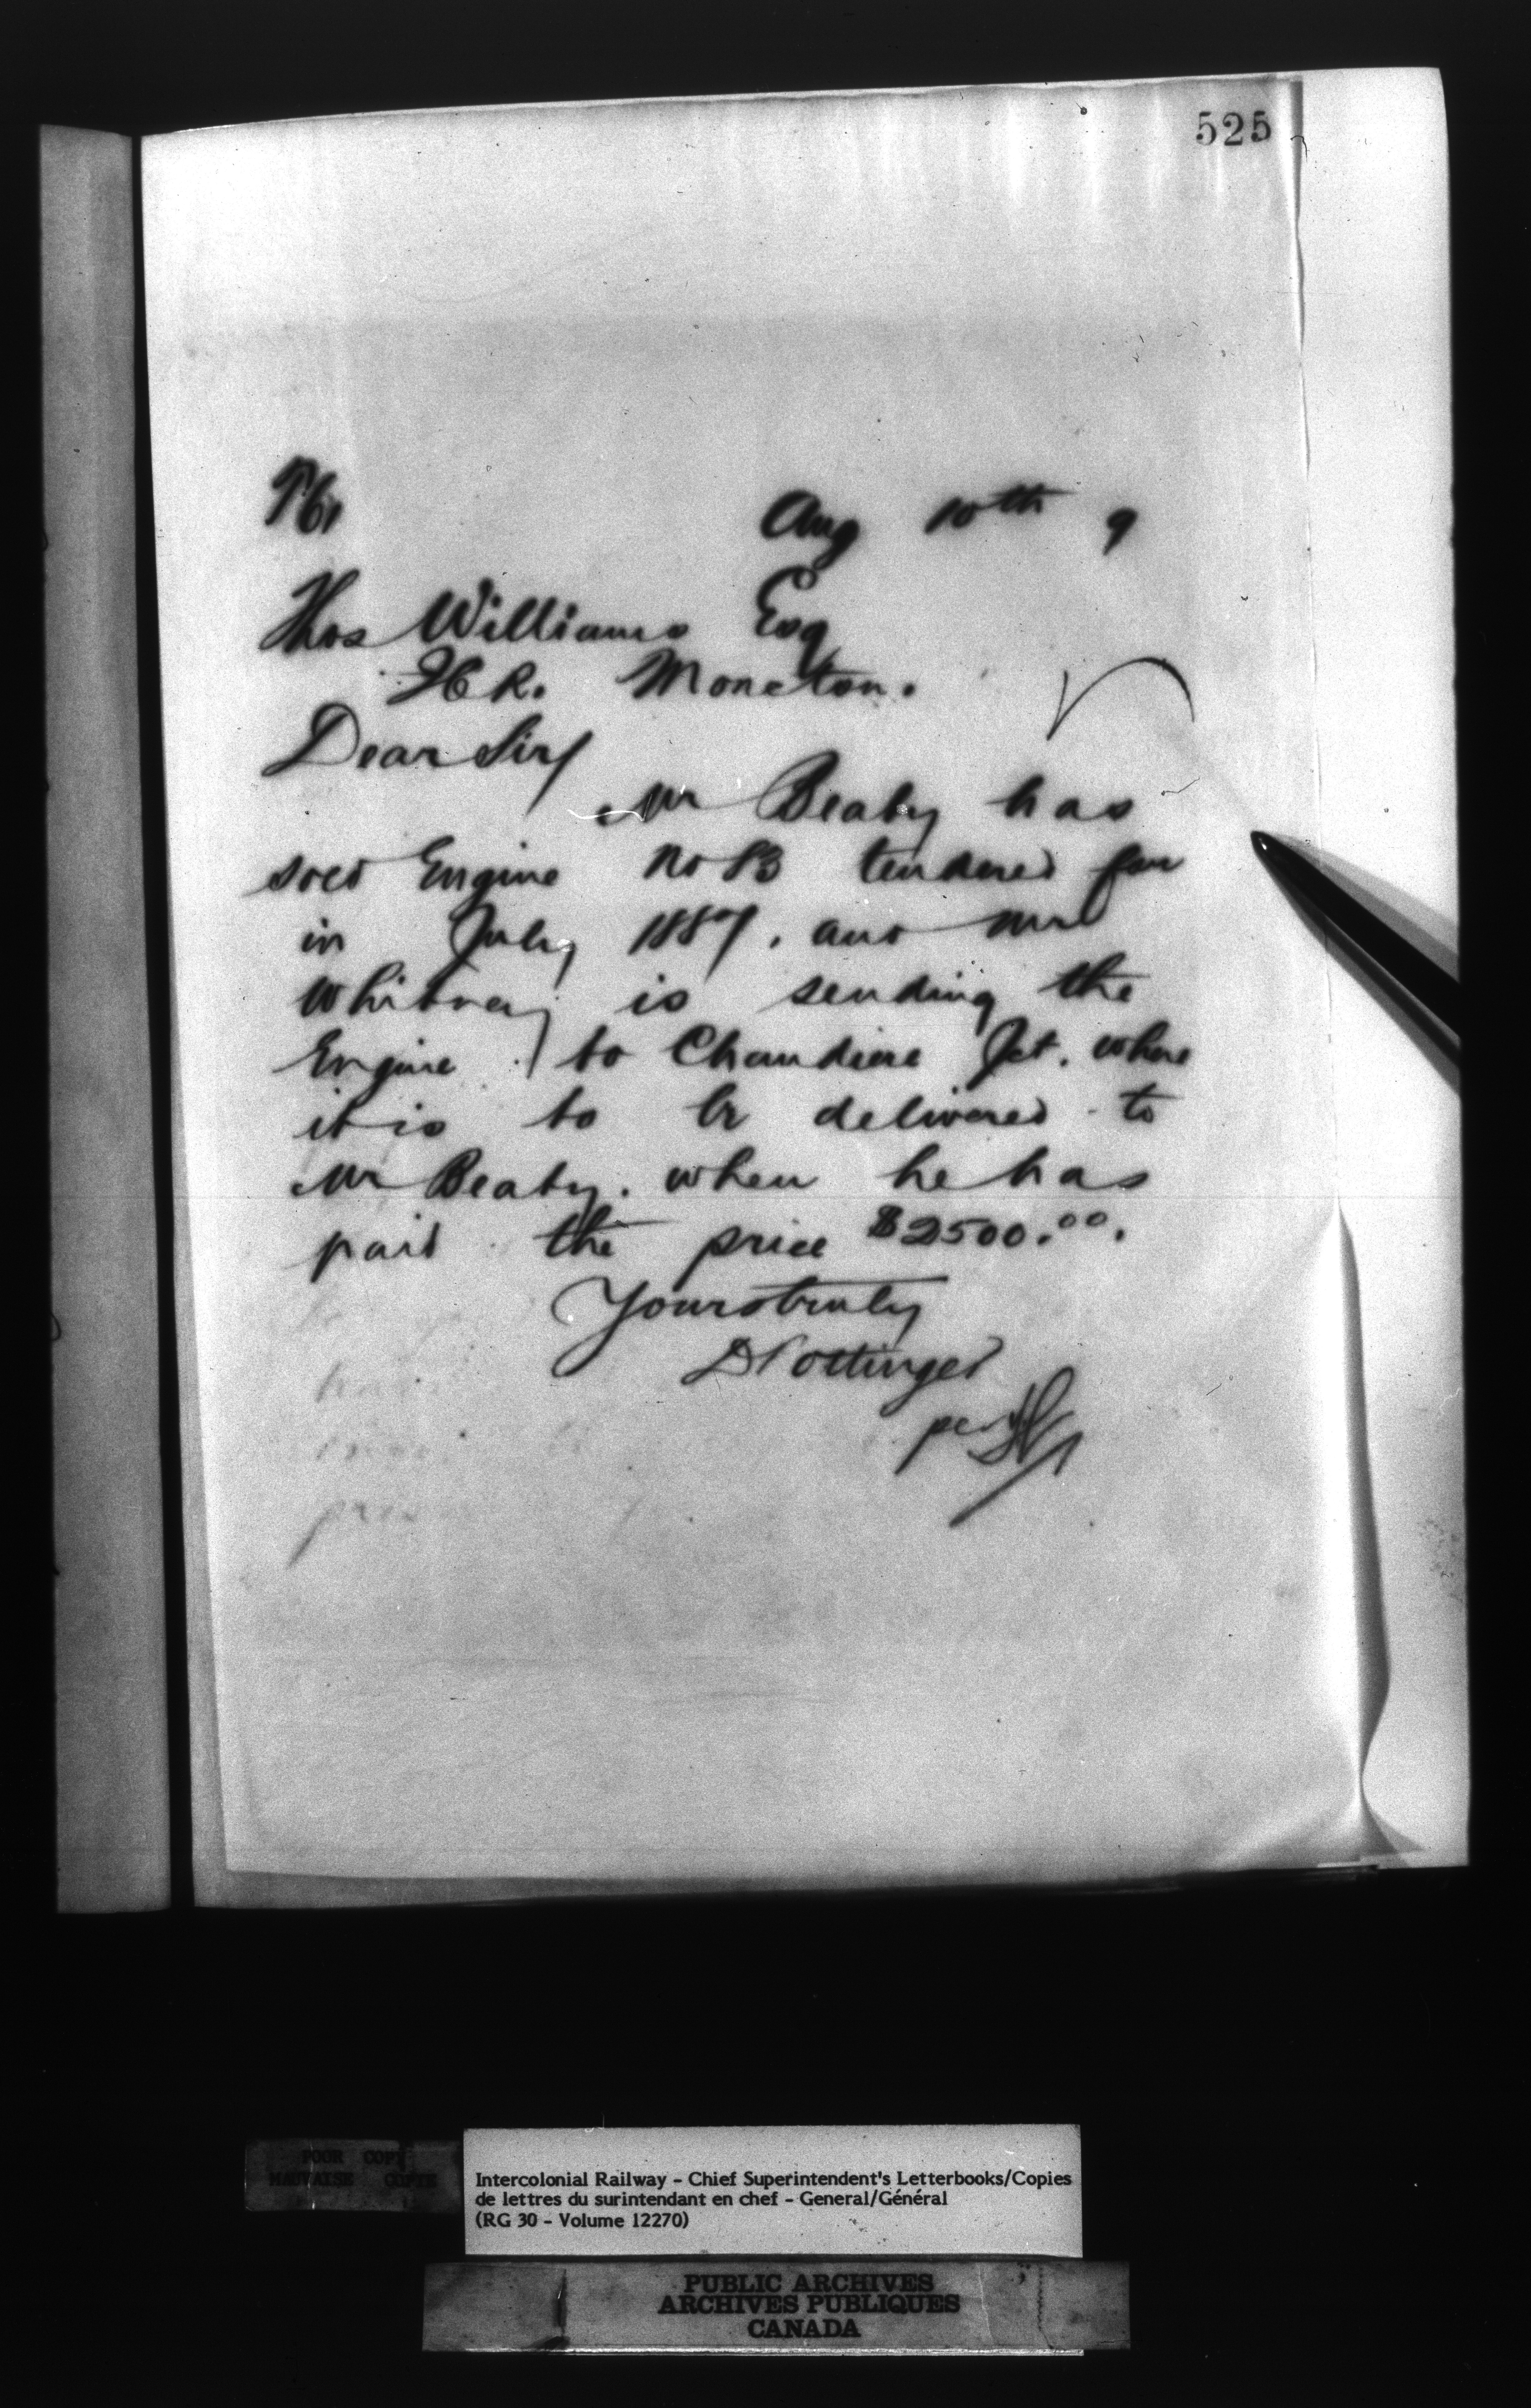 525
Aug 10th 9
Thos Williams Esq
I.C.R. Moncton.
Dear Sir/
Mr Beaty has
sold Engine No 83 tendered for
in July 1887, and Mr
Whitney is sending the
Engine to Chaudiere Jct. where
it is to be delivered to
Mr Beaty. when he has
paid the price $2500.00.
Yours truly
D Pottinger
per
POOR COPY
MAUVAISE COPIE
Intercolonial Railway - Chief Superintendent's Letterbooks/Copies
de lettres du surintendant en chef - General/Général
(RG 30 - Volume 12270)
PUBLIC ARCHIVES
ARCHIVES PUBLIQUES
CANADA